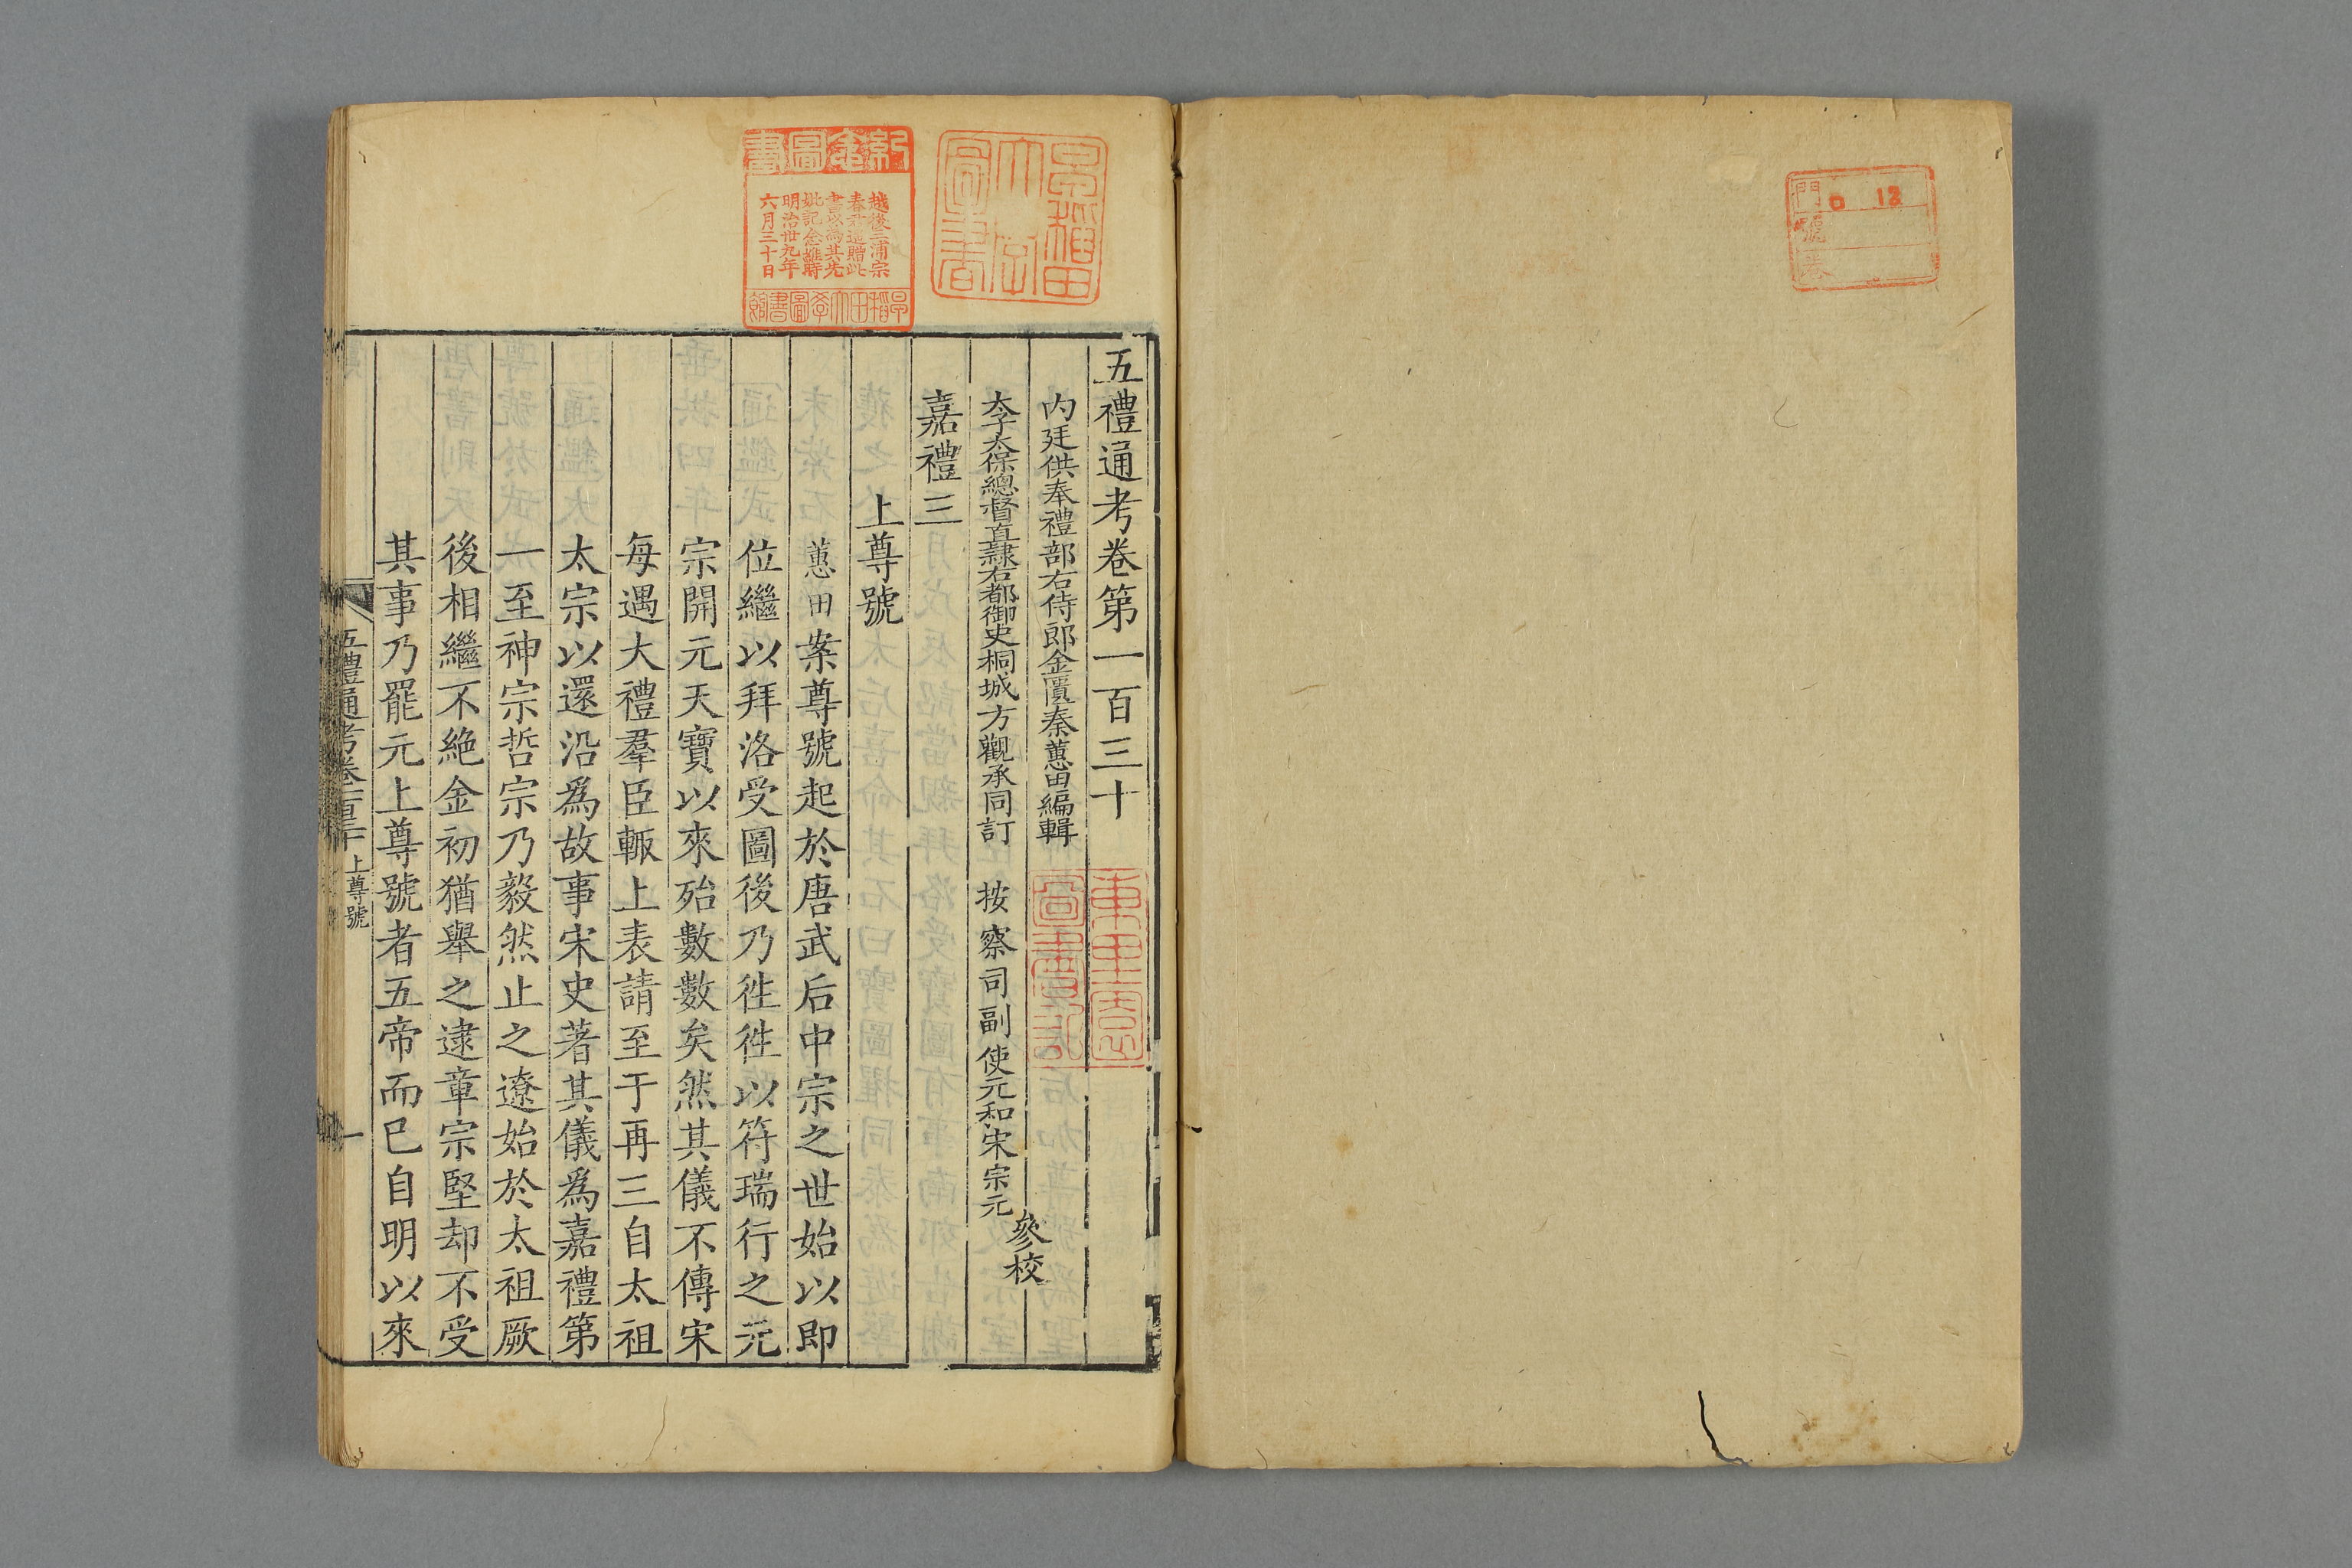 門 0 13
號
卷
早稲田
大學
圖書
紀念圖書
越後三浦宗
春君遺贈此
書以為其先
妣記念維時
明治卅九年
六月三十日
早稲田大學圖書館
五禮通考卷第一百三十
內廷供奉禮部右侍郎金匱秦蕙田編輯
太子太保總督直隷右都御史桐城方觀承同訂
按察司副使元和宋宗元
參校
嘉禮三
上尊號
蕙田案尊號起於唐武后中宗之世始以即
位繼以拜洛受圖後乃徃徃以符瑞行之元
宗開元天寶以來殆數數矣然其儀不傳宋
每遇大禮羣臣輙上表請至于再三自太祖
太宗以還沿爲故事宋史著其儀爲嘉禮第
一至神宗哲宗乃毅然止之遼始於太祖厥
後相繼不絶金初猶舉之逮章宗堅却不受
其事乃罷元上尊號者五帝而已自明以來
五禮通考卷一百三十 上尊號
一